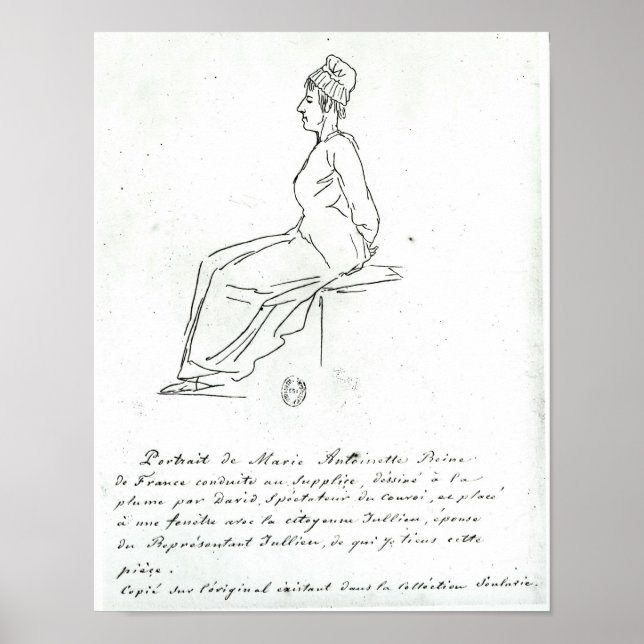 Portrait de Marie Antoinette Reine
de France conduite au Supplice, déssiné à la
plume par David, Spéctateur du convoi, et placé
à une fenêtre avec la citoyenne Jullien, épouse
du Représentant Jullien, de qui je tiens cette
pièçe.
Copié sur l'original éxistant dans la Colléction Soulavie.